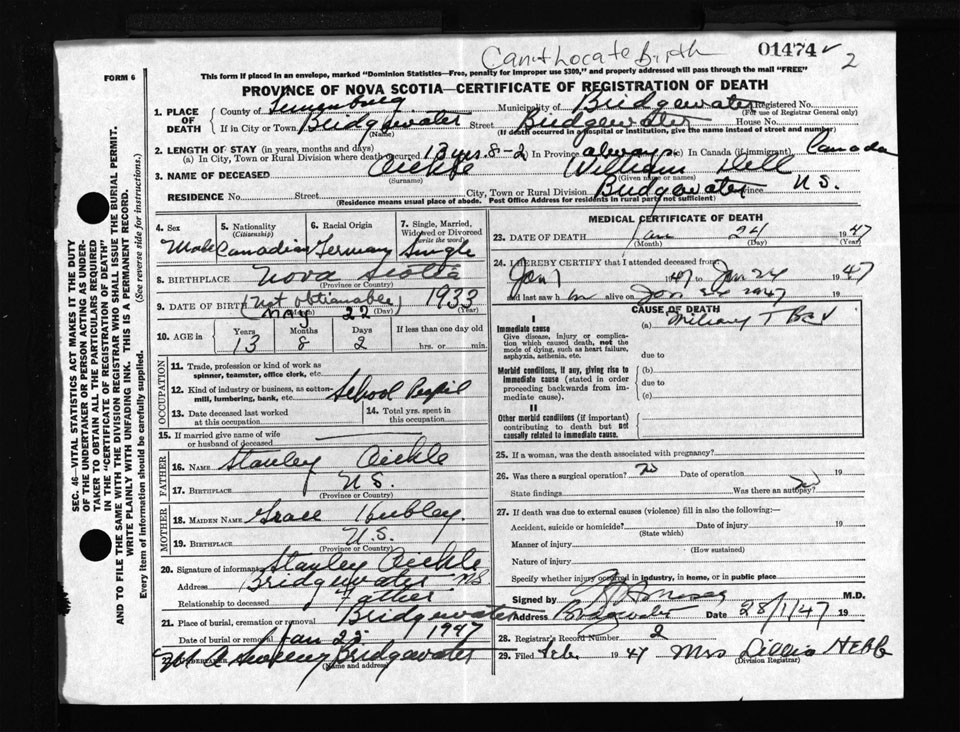 Can't Locate Birth
01474
2
FORM 6
This form if placed in an envelope, marked "Dominion Statistics—Free, penalty for improper use $300," and properly addressed will pass through the mail "FREE"
PROVINCE OF NOVA SCOTIA—CERTIFICATE OF REGISTRATION OF DEATH
1. PLACE OF DEATH
County of Lunenburg Municipality of Bridgewater Registered No.
(For use of Registrar General only)
If in City or Town Bridgewater Street Bridgewater House No.
(Name) (If death occurred in a hospital or institution, give the name instead of street and number)
2. LENGTH OF STAY (in years, months and days)
(a) In City, Town or Rural Division where death occurred 13 yrs. 8-2 (b) In Province always (c) In Canada (if immigrant) Canada
3. NAME OF DECEASED Oickle William Dell
(Surname) (Given name or names)
RESIDENCE No. Street City, Town or Rural Division Bridgewater Province N.S.
(Residence means usual place of abode. Post Office Address for residents in rural parts not sufficient)
4. Sex
Male
5. Nationality
(Citizenship)
Canadian
6. Racial Origin
Germany
7. Single, Married, Widowed or Divorced
(write the word)
Single
8. BIRTHPLACE Nova Scotia
(Province or Country)
9. DATE OF BIRTH (not obtianable) 1933
May 22
(Month) (Day) (Year)
10. AGE in Years Months Days If less than one day old
13 8 2 hrs. or min.
OCCUPATION
11. Trade, profession or kind of work as spinner, teamster, office clerk, etc.
12. Kind of industry or business, as cotton-mill, lumbering, bank, etc. School Pupil
13. Date deceased last worked at this occupation
14. Total yrs. spent in this occupation
15. If married give name of wife or husband of deceased
FATHER
16. NAME Stanley Oickle
17. BIRTHPLACE N.S.
(Province or Country)
MOTHER
18. MAIDEN NAME Grace Hubley
19. BIRTHPLACE N.S.
(Province or Country)
20. Signature of informant Stanley Oickle
Address Bridgewater NS
Relationship to deceased Father
21. Place of burial, cremation or removal Bridgewater
Date of burial or removal Jan 25 1947
22. UNDERTAKER Bridgewater
(Name and address)
MEDICAL CERTIFICATE OF DEATH
23. DATE OF DEATH Jan 24 1947
(Month) (Day) (Year)
24. I HEREBY CERTIFY that I attended deceased from
Jan 1 1947 to Jan 24 1947
and last saw him alive on Jan 1947
CAUSE OF DEATH
I
Immediate cause
Give disease, injury or complication which caused death, not the mode of dying, such as heart failure, asphyxia, asthenia, etc.
(a) Miliary T Bc
due to
Morbid conditions, if any, giving rise to immediate cause (stated in order proceeding backwards from immediate cause).
(b)
due to
(c)
II
Other morbid conditions (if important) contributing to death but not causally related to immediate cause.
25. If a woman, was the death associated with pregnancy?
26. Was there a surgical operation? no Date of operation 19
State findings Was there an autopsy? no
27. If death was due to external causes (violence) fill in also the following:—
Accident, suicide or homicide? Date of injury 19
(State which)
Manner of injury
(How sustained)
Nature of injury
Specify whether injury occurred in industry, in home, or in public place
Signed by M.D.
Address Bridgewater Date 28/1/47 19
28. Registrar's Record Number 2
29. Filed 1947 Mrs Dillis Hebb
(Division Registrar)
SEC. 46—VITAL STATISTICS ACT MAKES IT THE DUTY
OF THE UNDERTAKER OR PERSON ACTING AS UNDERTAKER
TO OBTAIN ALL THE PARTICULARS REQUIRED
IN THE "CERTIFICATE OF REGISTRATION OF DEATH"
AND TO FILE THE SAME WITH THE DIVISION REGISTRAR WHO SHALL ISSUE THE BURIAL PERMIT.
WRITE PLAINLY WITH UNFADING INK. THIS IS A PERMANENT RECORD.
Every item of information should be carefully supplied. (See reverse side for instructions.)